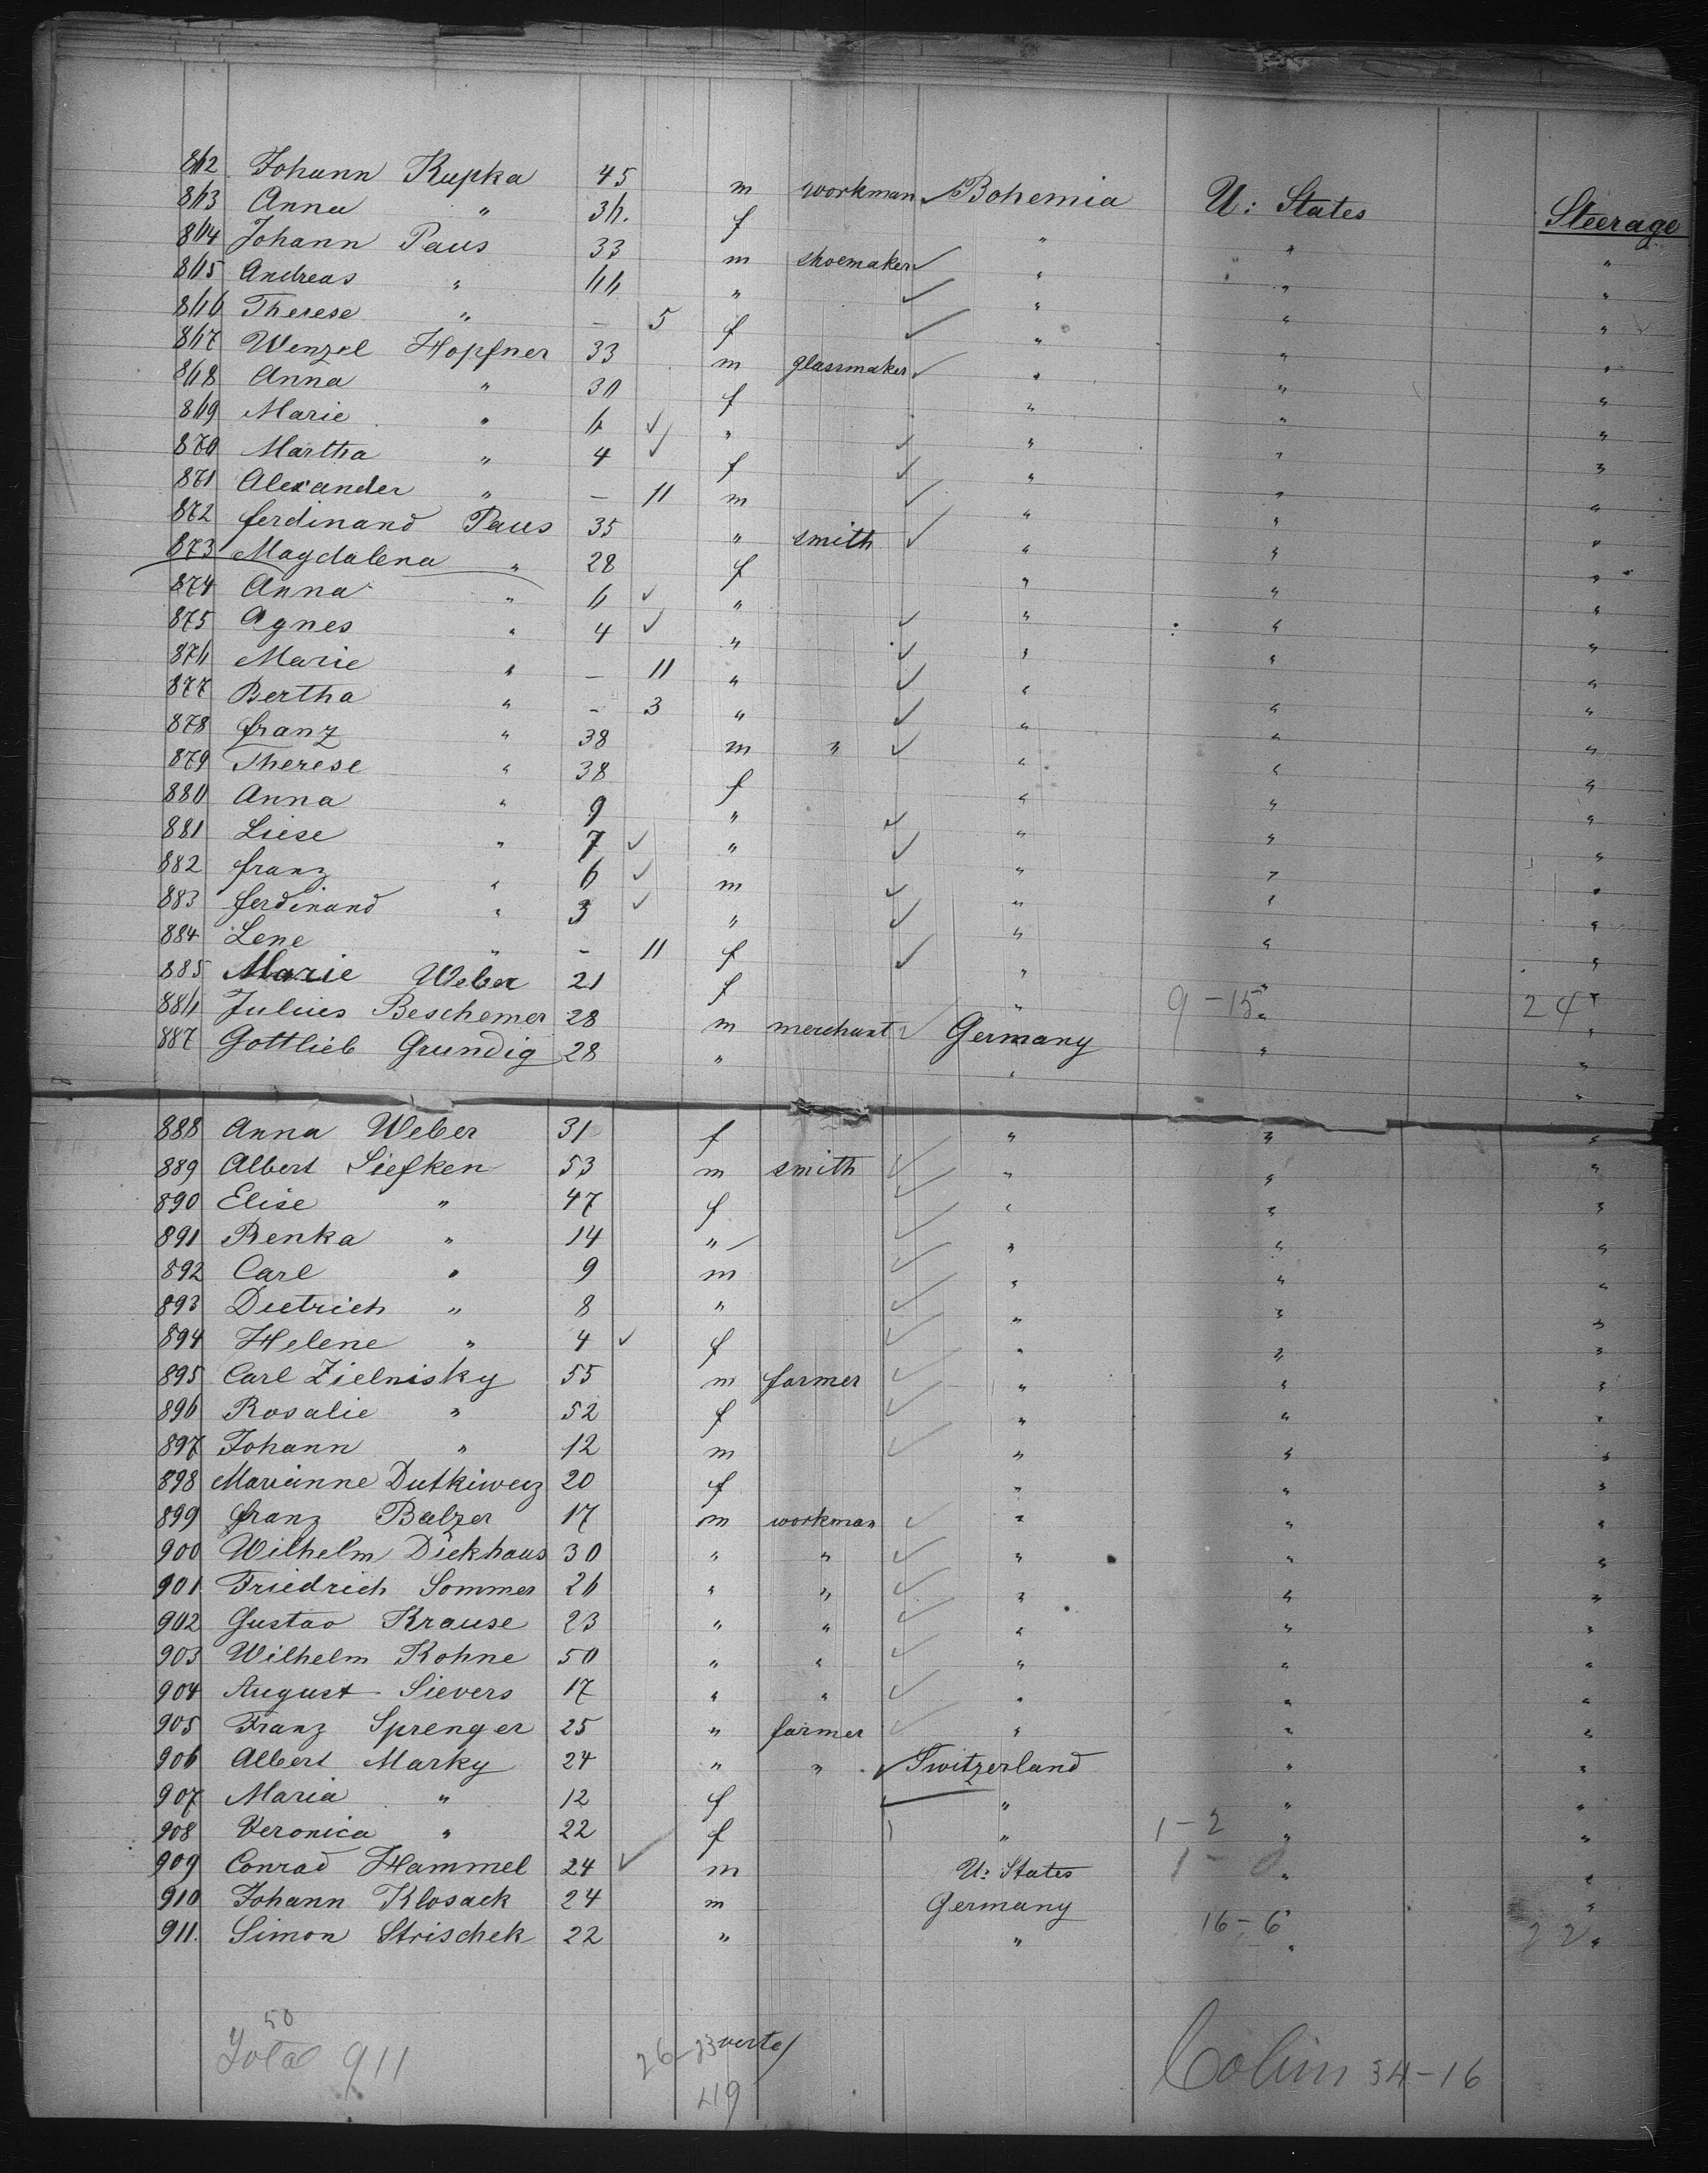 862 Johann Kupka 45 m workman Bohemia U: States Steerage
863 Anna " 36. f " " "
864 Johann Paus 33 m shoemaker " " "
865 Andreas " 66 " " " "
866 Therese " – 5 f " " "
867 Wenzel Hopfner 33 m glassmaker " " "
868 Anna " 30 f " " "
869 Marie " 6 " " " "
870 Martha " 4 f " " "
871 Alexander " – 11 m " " "
872 ferdinand Paus 35 " smith " " "
873 Magdalena " 28 f " " "
874 Anna " 6 " " " "
875 Agnes " 4 " " " "
876 Marie " – 11 " " " "
877 Bertha " – 3 " " " "
878 franz " 38 m " " " "
879 Therese " 38 f " " "
880 Anna " 9 " " " "
881 Liese " 7 " " " "
882 franz " 6 m " " "
883 ferdinand " 3 " " " "
884 Lene " – 11 f " " "
885 Marie Weber 21 f " " "
886 Julius Beschemer 28 m merchant Germany 9–15 " 24 "
887 Gottlieb Grundig 28 " " " "
888 Anna Weber 31 f " " "
889 Albert Siefken 53 m smith " " "
890 Elise " 47 f " " "
891 Renka " 14 " " " "
892 Carl " 9 m " " "
893 Dietrich " 8 " " " "
894 Helene " 4 f " " "
895 Carl Zielnisky 55 m farmer " " "
896 Rosalie " 52 f " " "
897 Johann " 12 m " " "
898 Marianne Dutkiweiz 20 f " " "
899 franz Balzer 17 m workman " " "
900 Wilhelm Dickhaus 30 " " " " "
901 Friedrich Sommer 26 " " " " "
902 Gustav Krause 23 " " " " "
903 Wilhelm Kohne 50 " " " " "
904 August Sievers 17 " " " " "
905 Franz Sprenger 25 " farmer " " "
906 Albert Marky 24 " " Switzerland " "
907 Maria " 12 f " " "
908 Veronica " 22 f " 1–2 " "
909 Conrad Hammel 24 m U: States 1–0 " "
910 Johann Klosack 24 m Germany " "
911. Simon Strischek 22 " " 16–6 " 22 "
50
Total 911 26–23 verte/ Colim 34–16
49